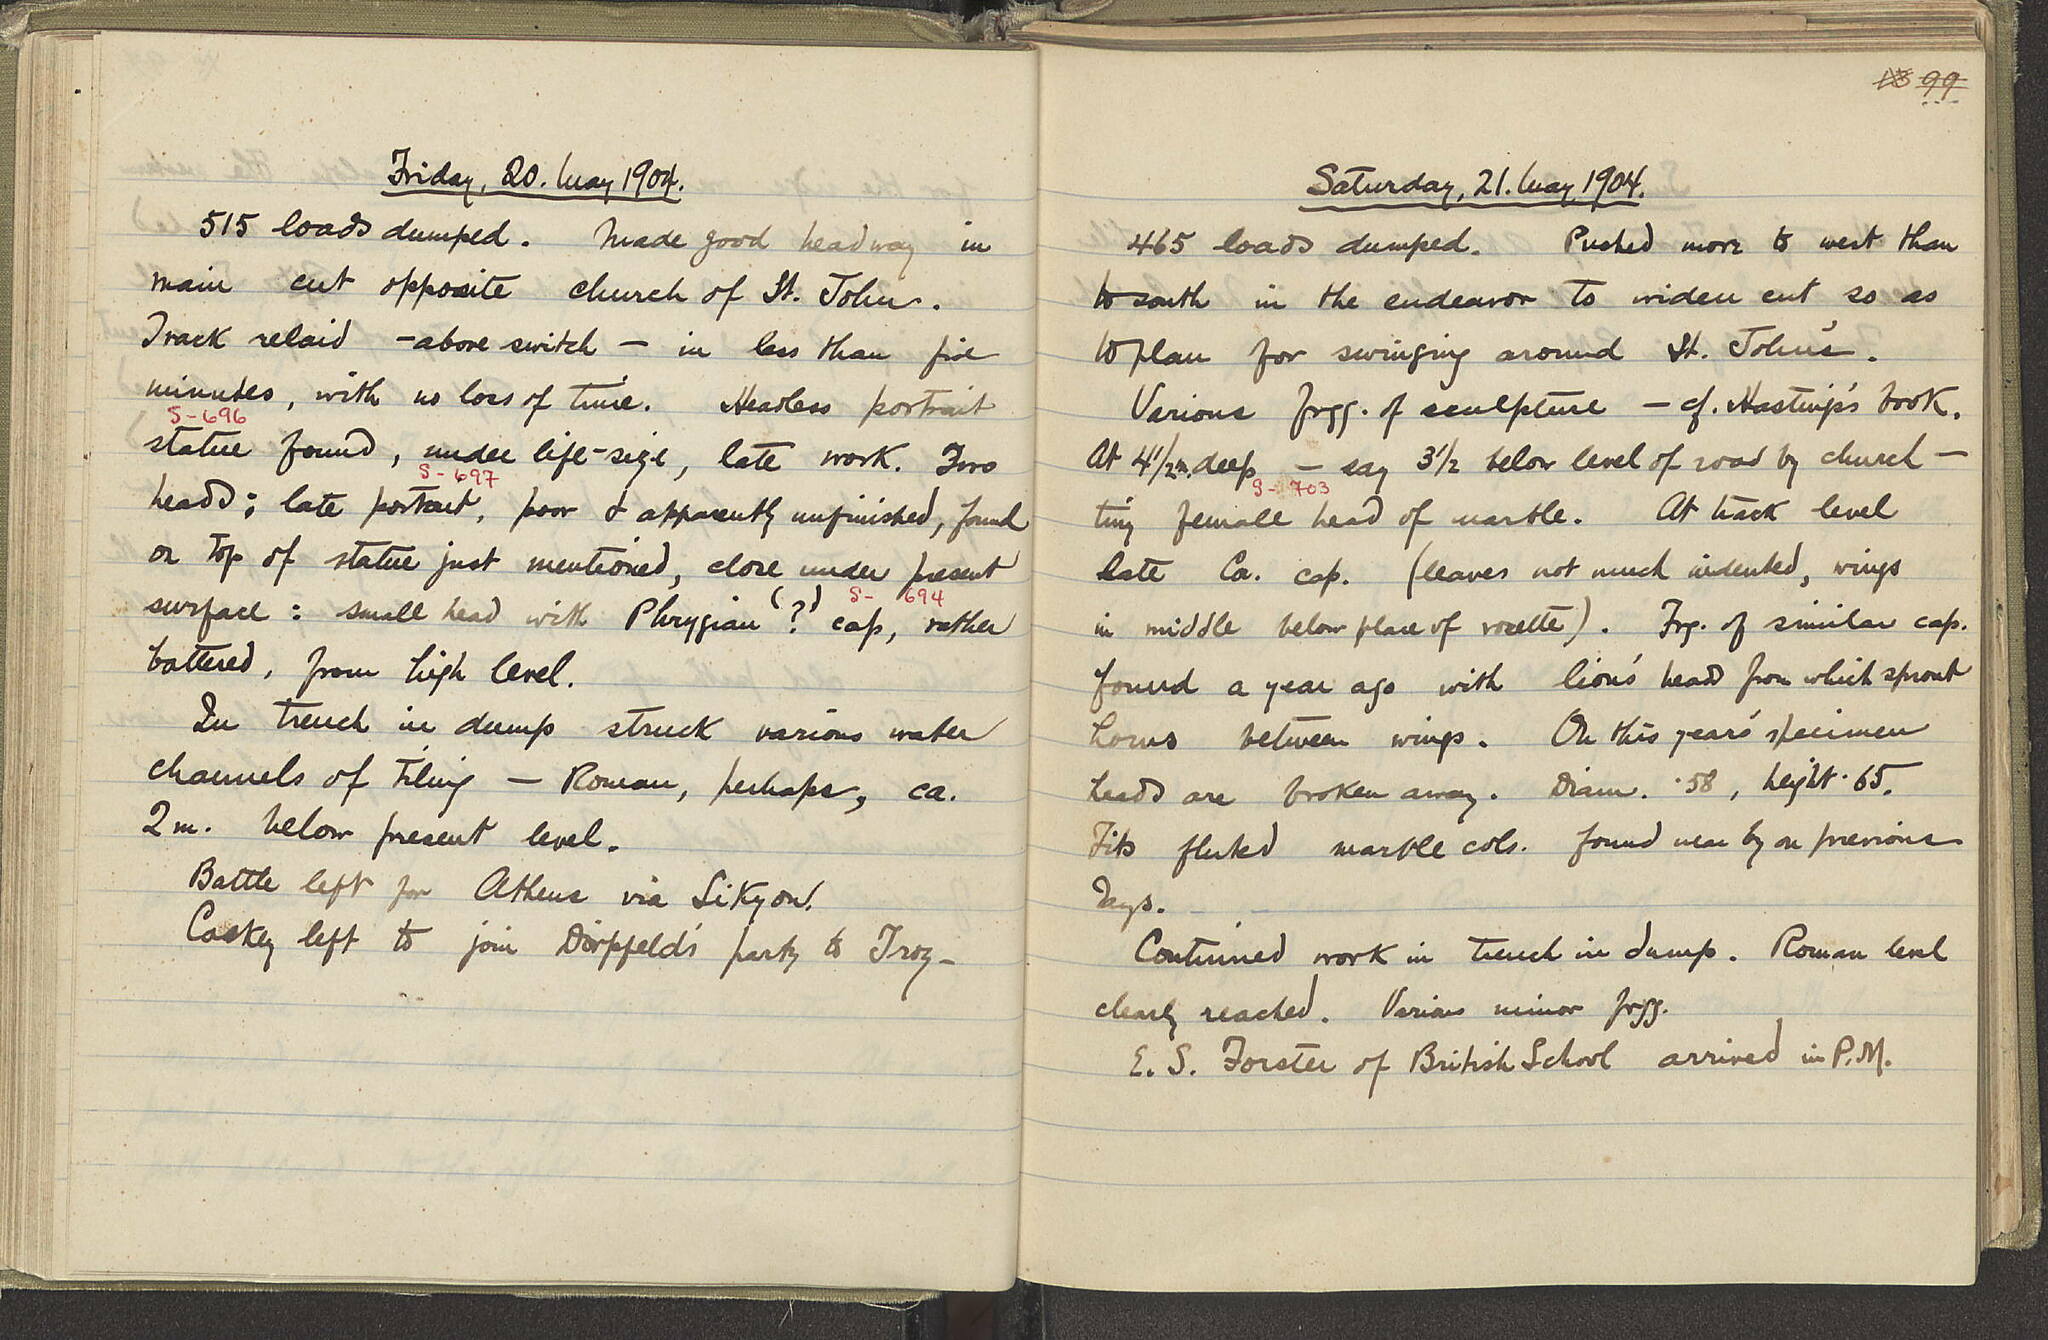 Friday, 20. May 1904.
515 loads dumped. Made good headway in
main cut opposite church of St. John.
Track relaid - above switch - in less than five
minutes, with no loss of time. Headless portrait
S-696
statue found, under life-size, late work. Two
S-697
heads; late portrait, poor & apparently unfinished, found
on top of statue just mentioned, close under present
S- 694
surface: small head with Phrygian (?) cap, rather
battered, from high level.
In trench in dump struck various water
channels of tiling — Roman, perhaps, ca.
2 m. below present level.
Battle left for Athens via Sikyon.
Caskey left to join Dörpfeld's party to Troy -
99
Saturday, 21. May 1904.
465 loads dumped. Pushed more to west than
to south in the endeavor to widen cut so as
to plan for swinging around St. John's.
Various frgg. of sculpture - cf. Hasting's book.
At 4 1/2 m. deep - say 3 1/2 below level of road by church -
S- 703
tiny female head of marble. At track level
late Co. cap. (leaves not much indented, wings
in middle below place of rosette). Frg. of similar cap.
found a year ago with lion's head from which sprout
horns between wings. On this year's specimen
heads are broken away. Diam. .58, height .65.
Fits fluted marble cols. found near by on previous
days.
Continued work in trench in dump. Roman level
clearly reached. Various minor frgg.
E. S. Forster of British School arrived in P.M.